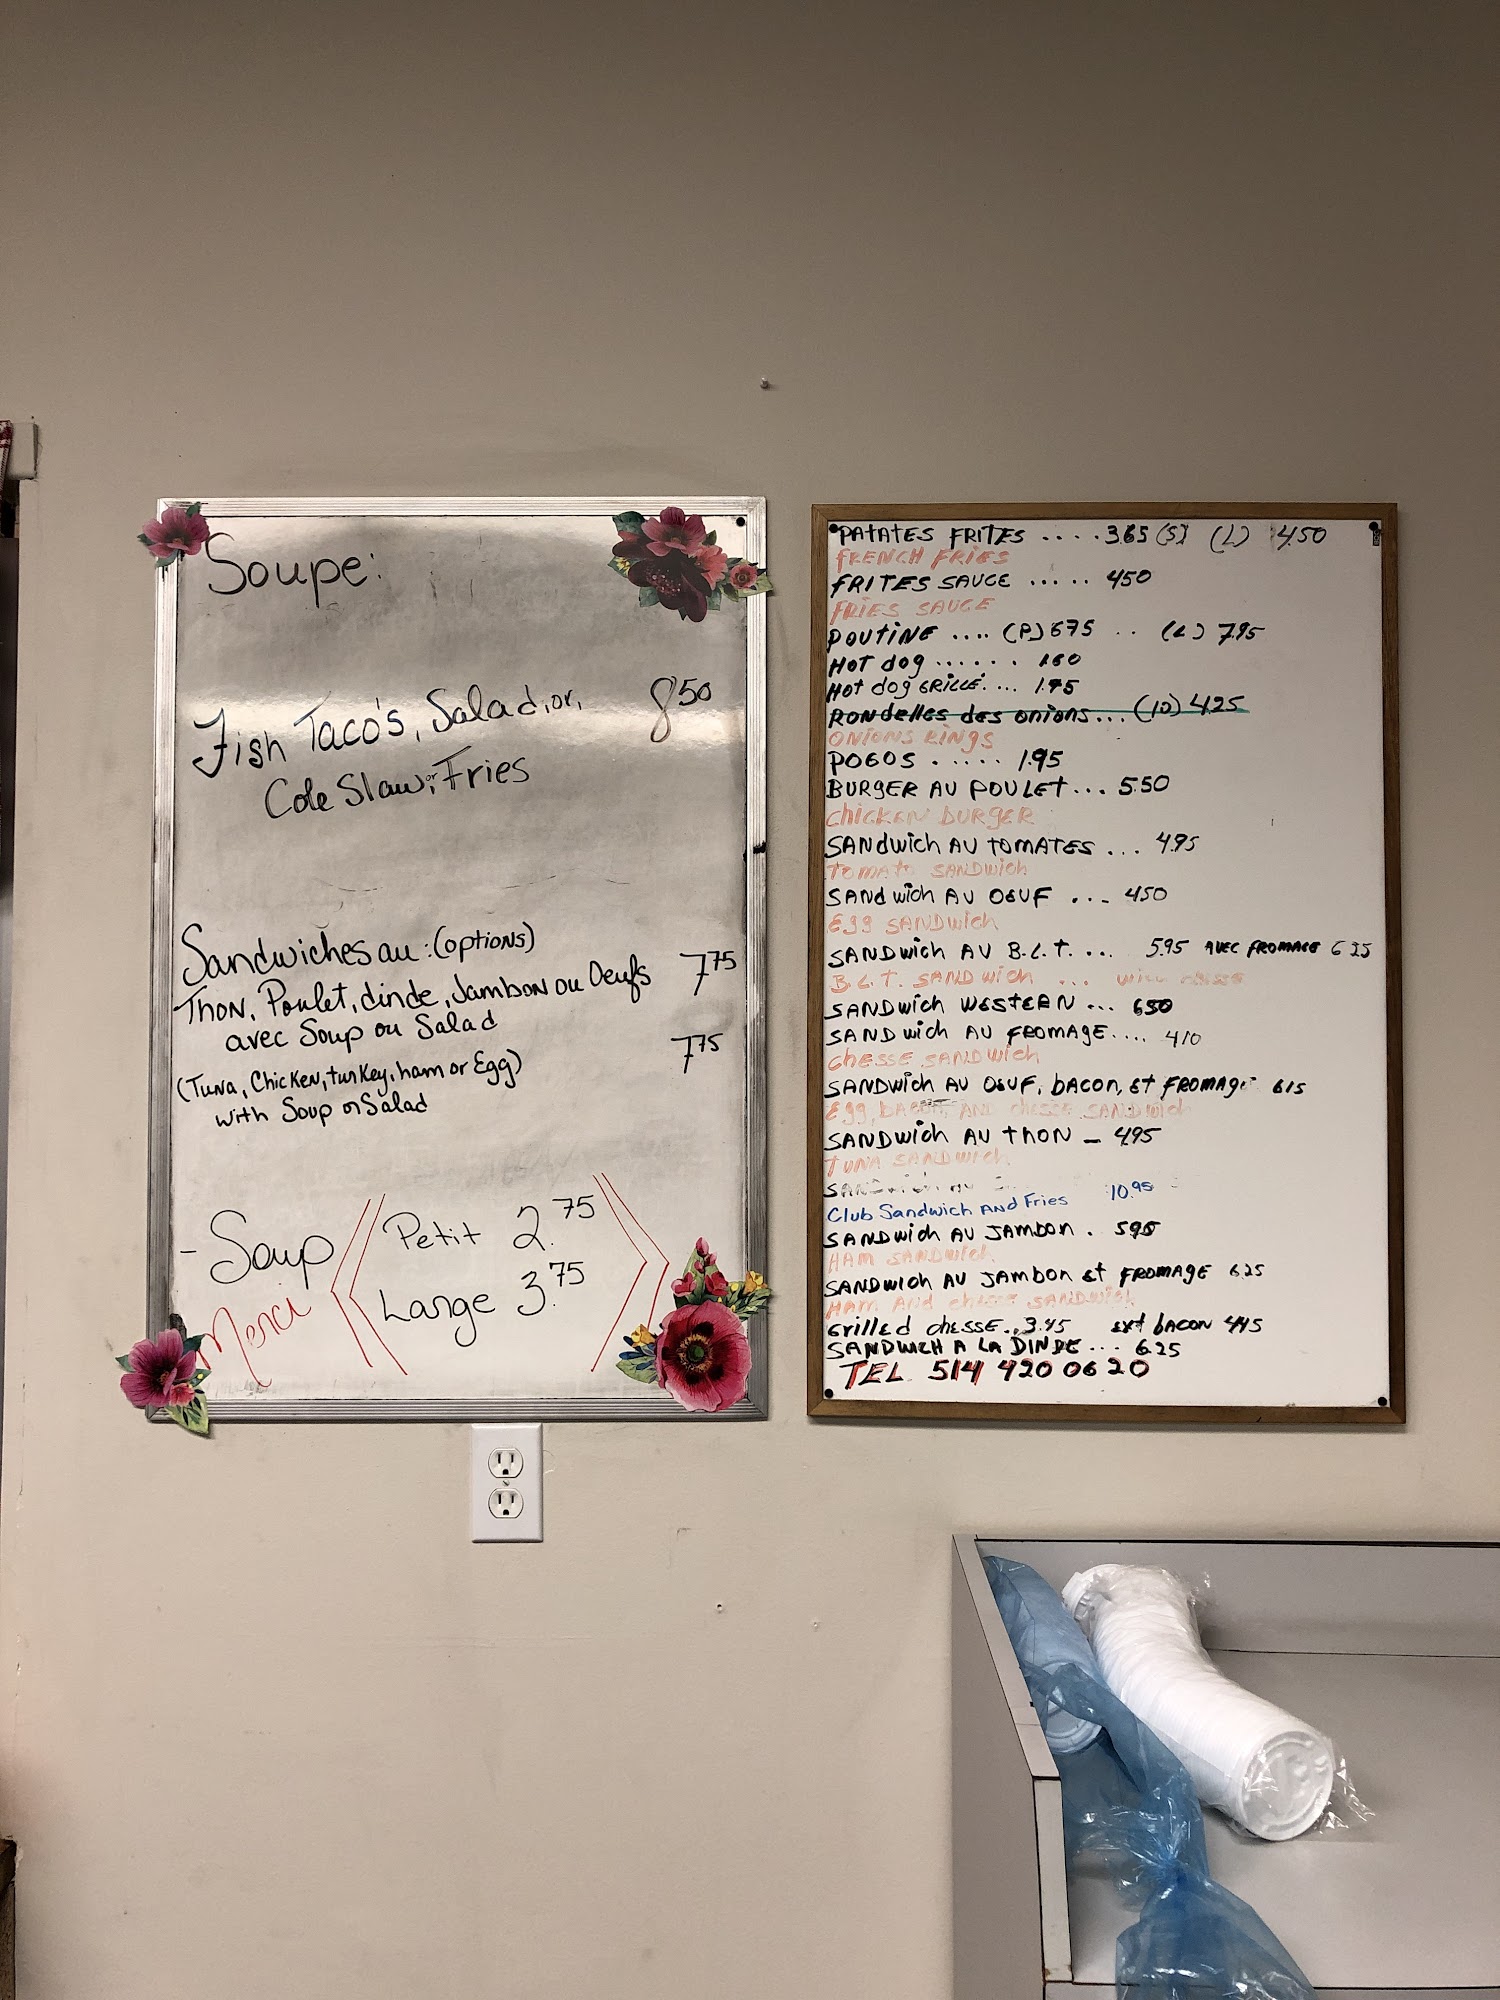 Soupe:
Fish Taco's, Salad, or, 8.50
Cole Slaw, or Fries
Sandwiches au : (options)
Thon, Poulet, dinde, Jambon ou Oeufs 7.75
avec Soup ou Salad
(Tuna, Chicken, turkey, ham or Egg) 7.75
with Soup or Salad
- Soup
Petit 2.75
Large 3.75
Merci
PATATES FRITES .... 3.65 (S) (L) 4.50
FRENCH FRIES
FRITES SAUCE ..... 450
FRIES SAUCE
POUTINE .... (P) 675 .. (L) 7.95
HOT dog ...... 1.60
HOT dog GRILLE.... 1.95
RONdelles des onions... (10) 4.25
ONIONS RINGS
POGOS ..... 1.95
BURGER AU POULET... 5.50
CHICKEN BURGER
SANdwich AU TOMATES ... 4.95
TOMATO SANDWICH
SANdwich AU OEUF ... 450
Egg SANDWICH
SANDwich AU B.L.T. ... 5.95 AVEC FROMAGE 6 35
B.L.T. SANDwich ... with chesse
SANDwich WESTERN ... 650
SANDwich AU FROMAGE.... 410
CHESSE SANDwich
SANDwich AU OEUF, bACON, Et FROMAGE 615
Egg, bACON, AND chesse SANDwich
SANDwich AU tHON _ 4.95
TUNA SANDwich
SANDwich AU
Club Sandwich AND Fries 10.95
SANDwich AU JAMbON . 595
HAM SANDwich
SANDwich AU JAMbON Et FROMAGE 6.25
HAM AND chesse SANDwich
Grilled chesse.. 3.45 ext bACON 445
SANDWICH A LA DINDE ... 6.25
TEL. 514 420 0620